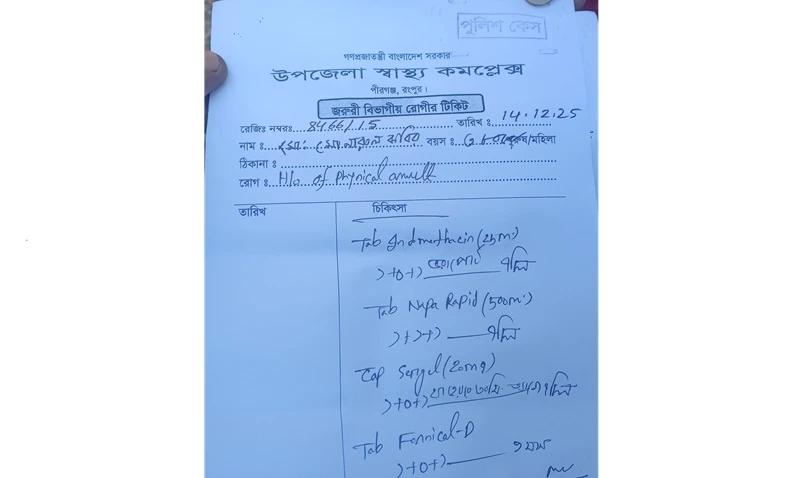 পুলিশ কেস
গণপ্রজাতন্ত্রী বাংলাদেশ সরকার
উপজেলা স্বাস্থ্য কমপ্লেক্স
পীরগঞ্জ, রংপুর।
জরুরী বিভাগীয় রোগীর টিকিট
রেজিঃ নম্বরঃ 8466/15 তারিখ ঃ 14.12.25
নাম ঃ মো: বয়স ঃ পুরুষ/মহিলা
ঠিকানা ঃ
রোগ ঃ H/o of Physical assault
তারিখ চিকিৎসা
Tab Indomethacin (25m)
১+০+১
Tab Napa Rapid (500m)
১+১+১
Cap Sergel (20mg)
১+০+১
Tab -D
১+০+১